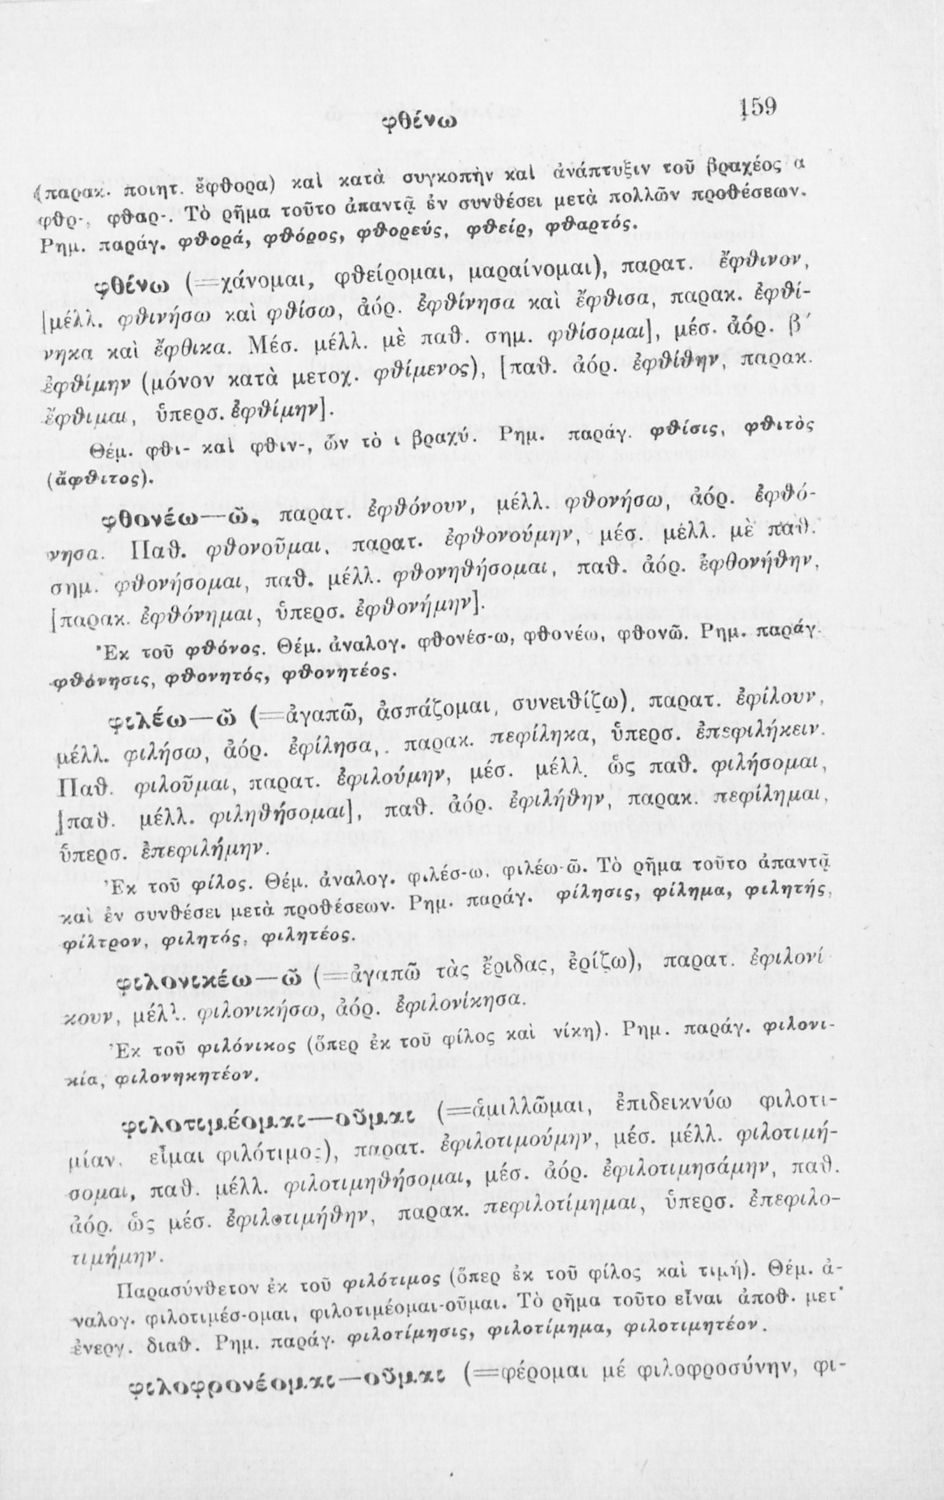 φθένω 159
(παρακ. ποιητ. ἔφθορα) καὶ κατὰ συγκοπὴν καὶ ἀνάπτυξιν τοῦ βραχέος α
φθρ-, φθαρ-. Τὸ ρῆμα τοῦτο ἀπαντᾷ ἐν συνθέσει μετὰ πολλῶν προθέσεων.
Ρημ. παράγ. φθορά, φθόρος, φθορεύς, φθείρ, φθαρτός.
φθένω (=χάνομαι, φθείρομαι, μαραίνομαι), παρατ. ἔφθινον,
[μέλλ. φθινήσω καὶ φθίσω, ἀόρ. ἐφθίνησα καὶ ἔφθισα, παρακ. ἐφθί-
νηκα καὶ ἔφθικα. Μέσ. μέλλ. μὲ παθ. σημ. φθίσομαι], μέσ. ἀόρ. β΄
ἐφθίμην (μόνον κατὰ μετοχ. φθίμενος), [παθ. ἀόρ. ἐφθίθην, παρακ.
ἔφθιμαι, ὑπερσ. ἐφθίμην].
Θέμ. φθι- καὶ φθιν-, ὧν τὸ ι βραχύ. Ρημ. παράγ. φθίσις, φθιτὸς
(ἄφθιτος).
φθονέω—ῶ, παρατ. ἐφθόνουν, μέλλ. φθονήσω, ἀόρ. ἐφθό-
νησα. Παθ. φθονοῦμαι, παρατ. ἐφθονούμην, μέσ. μέλλ. μὲ παθ.
σημ. φθονήσομαι, παθ. μέλλ. φθονηθήσομαι, παθ. ἀόρ. ἐφθονήθην,
[παρακ. ἐφθόνημαι, ὑπερσ. ἐφθονήμην].
Ἐκ τοῦ φθόνος. Θέμ. ἀναλογ. φθονέσ-ω, φθονέω, φθονῶ. Ρημ. παράγ.
φθόνησις, φθονητός, φθονητέος.
φιλέω—ῶ (=ἀγαπῶ, ἀσπάζομαι, συνειθίζω), παρατ. ἐφίλουν,
μέλλ. φιλήσω, ἀόρ. ἐφίλησα,. παρακ. πεφίληκα, ὑπερσ. ἐπεφιλήκειν.
Παθ. φιλοῦμαι, παρατ. ἐφιλούμην, μέσ. μέλλ. ὡς παθ. φιλήσομαι,
[παθ. μέλλ. φιληθήσομαι], παθ. ἀόρ. ἐφιλήθην, παρακ. πεφίλημαι,
ὑπερσ. ἐπεφιλήμην.
Ἐκ τοῦ φίλος. Θέμ. ἀναλογ. φιλέσ-ω, φιλέω-ῶ. Τὸ ρῆμα τοῦτο ἀπαντᾷ
καὶ ἐν συνθέσει μετὰ προθέσεων. Ρημ. παράγ. φίλησις, φίλημα, φιλητής,
φίλτρον, φιλητός, φιλητέος.
φιλονικέω—ῶ (=ἀγαπῶ τὰς ἔριδας, ἐρίζω), παρατ. ἐφιλονί
κουν, μέλλ. φιλονικήσω, ἀόρ. ἐφιλονίκησα.
Ἐκ τοῦ φιλόνικος (ὅπερ ἐκ τοῦ φίλος καὶ νίκη). Ρημ. παράγ. φιλονι-
κία, φιλονηκητέον.
φιλοτιμέομαι—οῦμαι (=ἁμιλλῶμαι, ἐπιδεικνύω φιλοτι-
μίαν, εἶμαι φιλότιμος), παρατ. ἐφιλοτιμούμην, μέσ. μέλλ. φιλοτιμή-
σομαι, παθ. μέλλ. φιλοτιμηθήσομαι, μέσ. ἀόρ. ἐφιλοτιμησάμην, παθ.
ἀόρ. ὡς μέσ. ἐφιλοτιμήθην, παρακ. πεφιλοτίμημαι, ὑπερσ. ἐπεφιλο-
τιμήμην.
Παρασύνθετον ἐκ τοῦ φιλότιμος (ὅπερ ἐκ τοῦ φίλος καὶ τιμή). Θέμ. ἀ-
ναλογ. φιλοτιμέσ-ομαι, φιλοτιμέομαι-οῦμαι. Τὸ ρῆμα τοῦτο εἶναι ἀποθ. μετ᾽
ἐνεργ. διαθ. Ρημ. παράγ. φιλοτίμησις, φιλοτίμημα, φιλοτιμητέον.
φιλοφρονέομαι—οῦμαι (=φέρομαι μέ φιλοφροσύνην, φι-